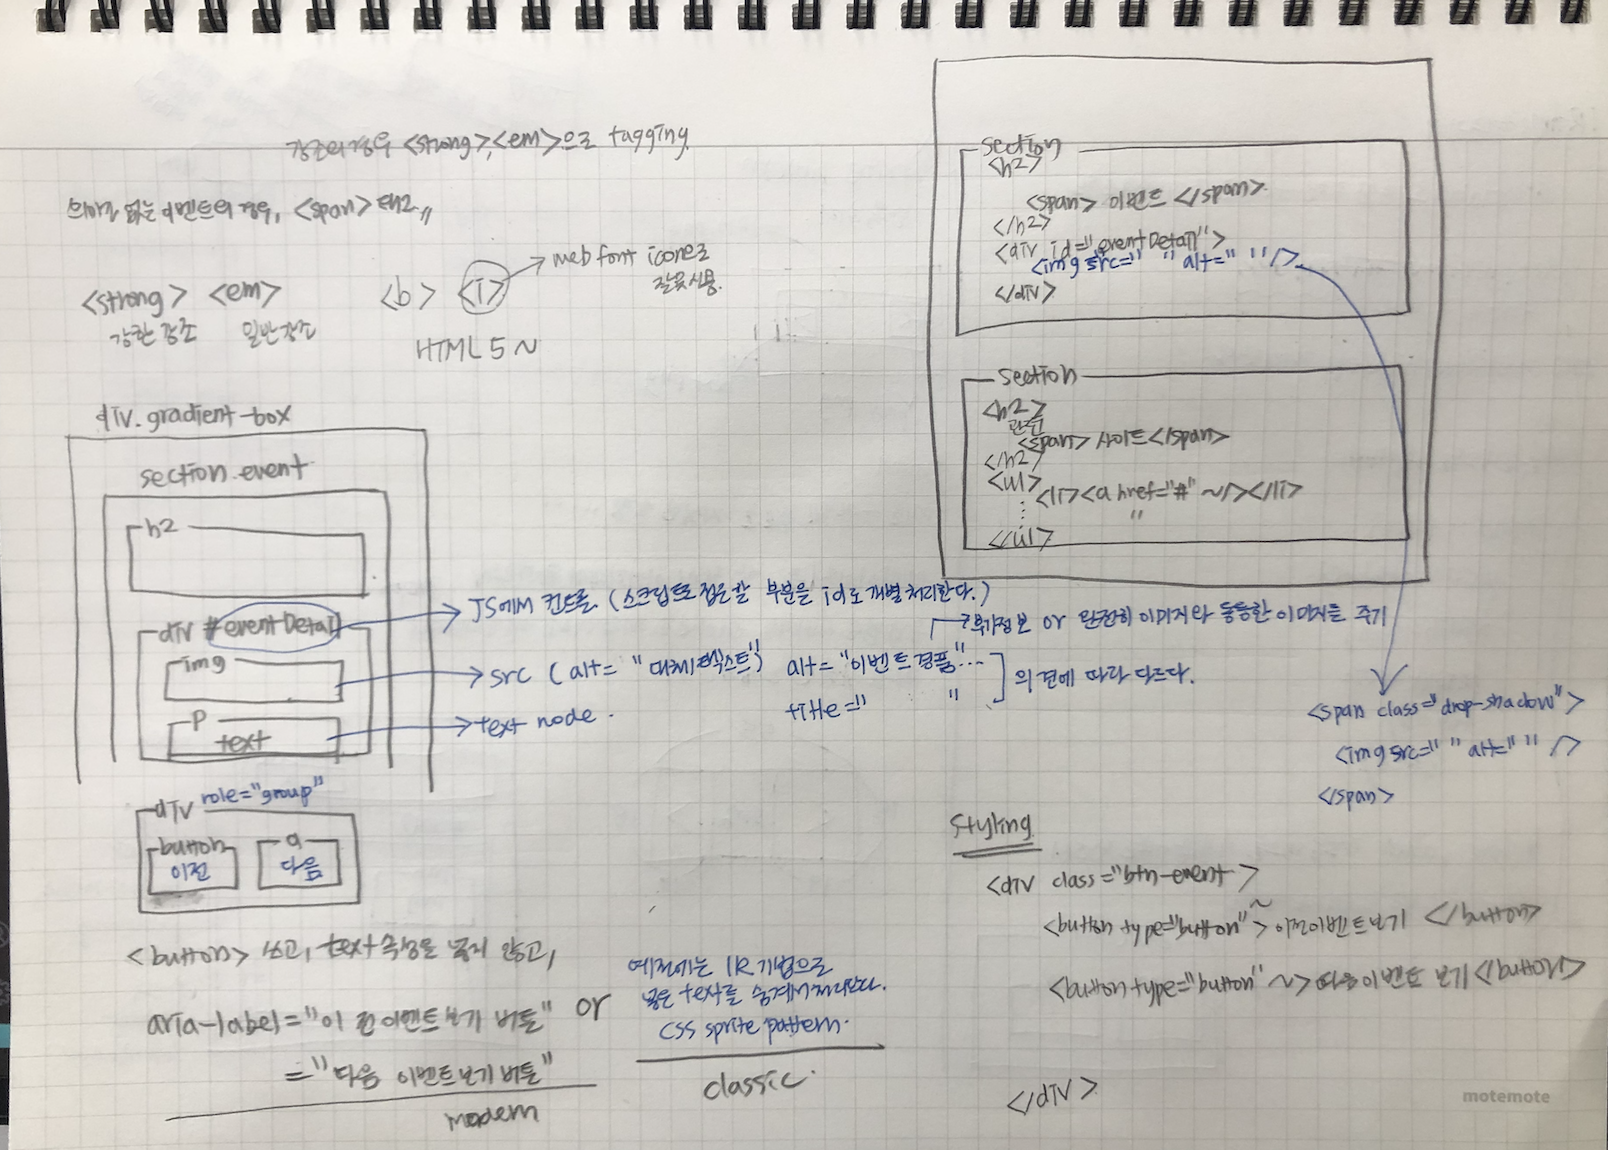 강조의 경우 <strong>, <em>으로 tagging
의미 없는 이벤트의 경우, <span> 태그
<strong> <em> <b> <i> → web font icon으로
잘못 사용.
강한 강조 일반 강조
HTML 5 ~
div.gradient-box
section.event
h2
div #eventDetail → JS에서 컨트롤 (스크립트로 접근할 부분을 id로 개별처리한다.)
img → src (alt= "대체텍스트") alt= "이벤트경품"...
title=" "
부가정보 or 완전히 이미지와 동등한 이미지를 주기
의견에 따라 다르다.
p
text → text node.
div role="group"
button a
이전 다음
<button> 쓰고, text 속성을 넣지 않고,
aria-label="이전 이벤트 보기 버튼"
="다음 이벤트 보기 버튼"
modern
or
예전에는 IR 기법으로
넣은 text를 숨겨서 처리했다.
CSS sprite pattern.
classic.
section
<h2>
<span> 이벤트 </span>
</h2>
<div id="eventDetail">
<img src=" " alt=" " />
</div>
section
<h2>
관련
<span> 사이트 </span>
</h2>
<ul>
<li><a href="#" ~/></li>
"
</ul>
<span class="drop-shadow">
<img src=" " alt=" " />
</span>
Styling
<div class="btn-event">
<button type="button" ~> 이전이벤트보기 </button>
<button type="button" ~> 다음이벤트 보기 </button>
</div>
motemote